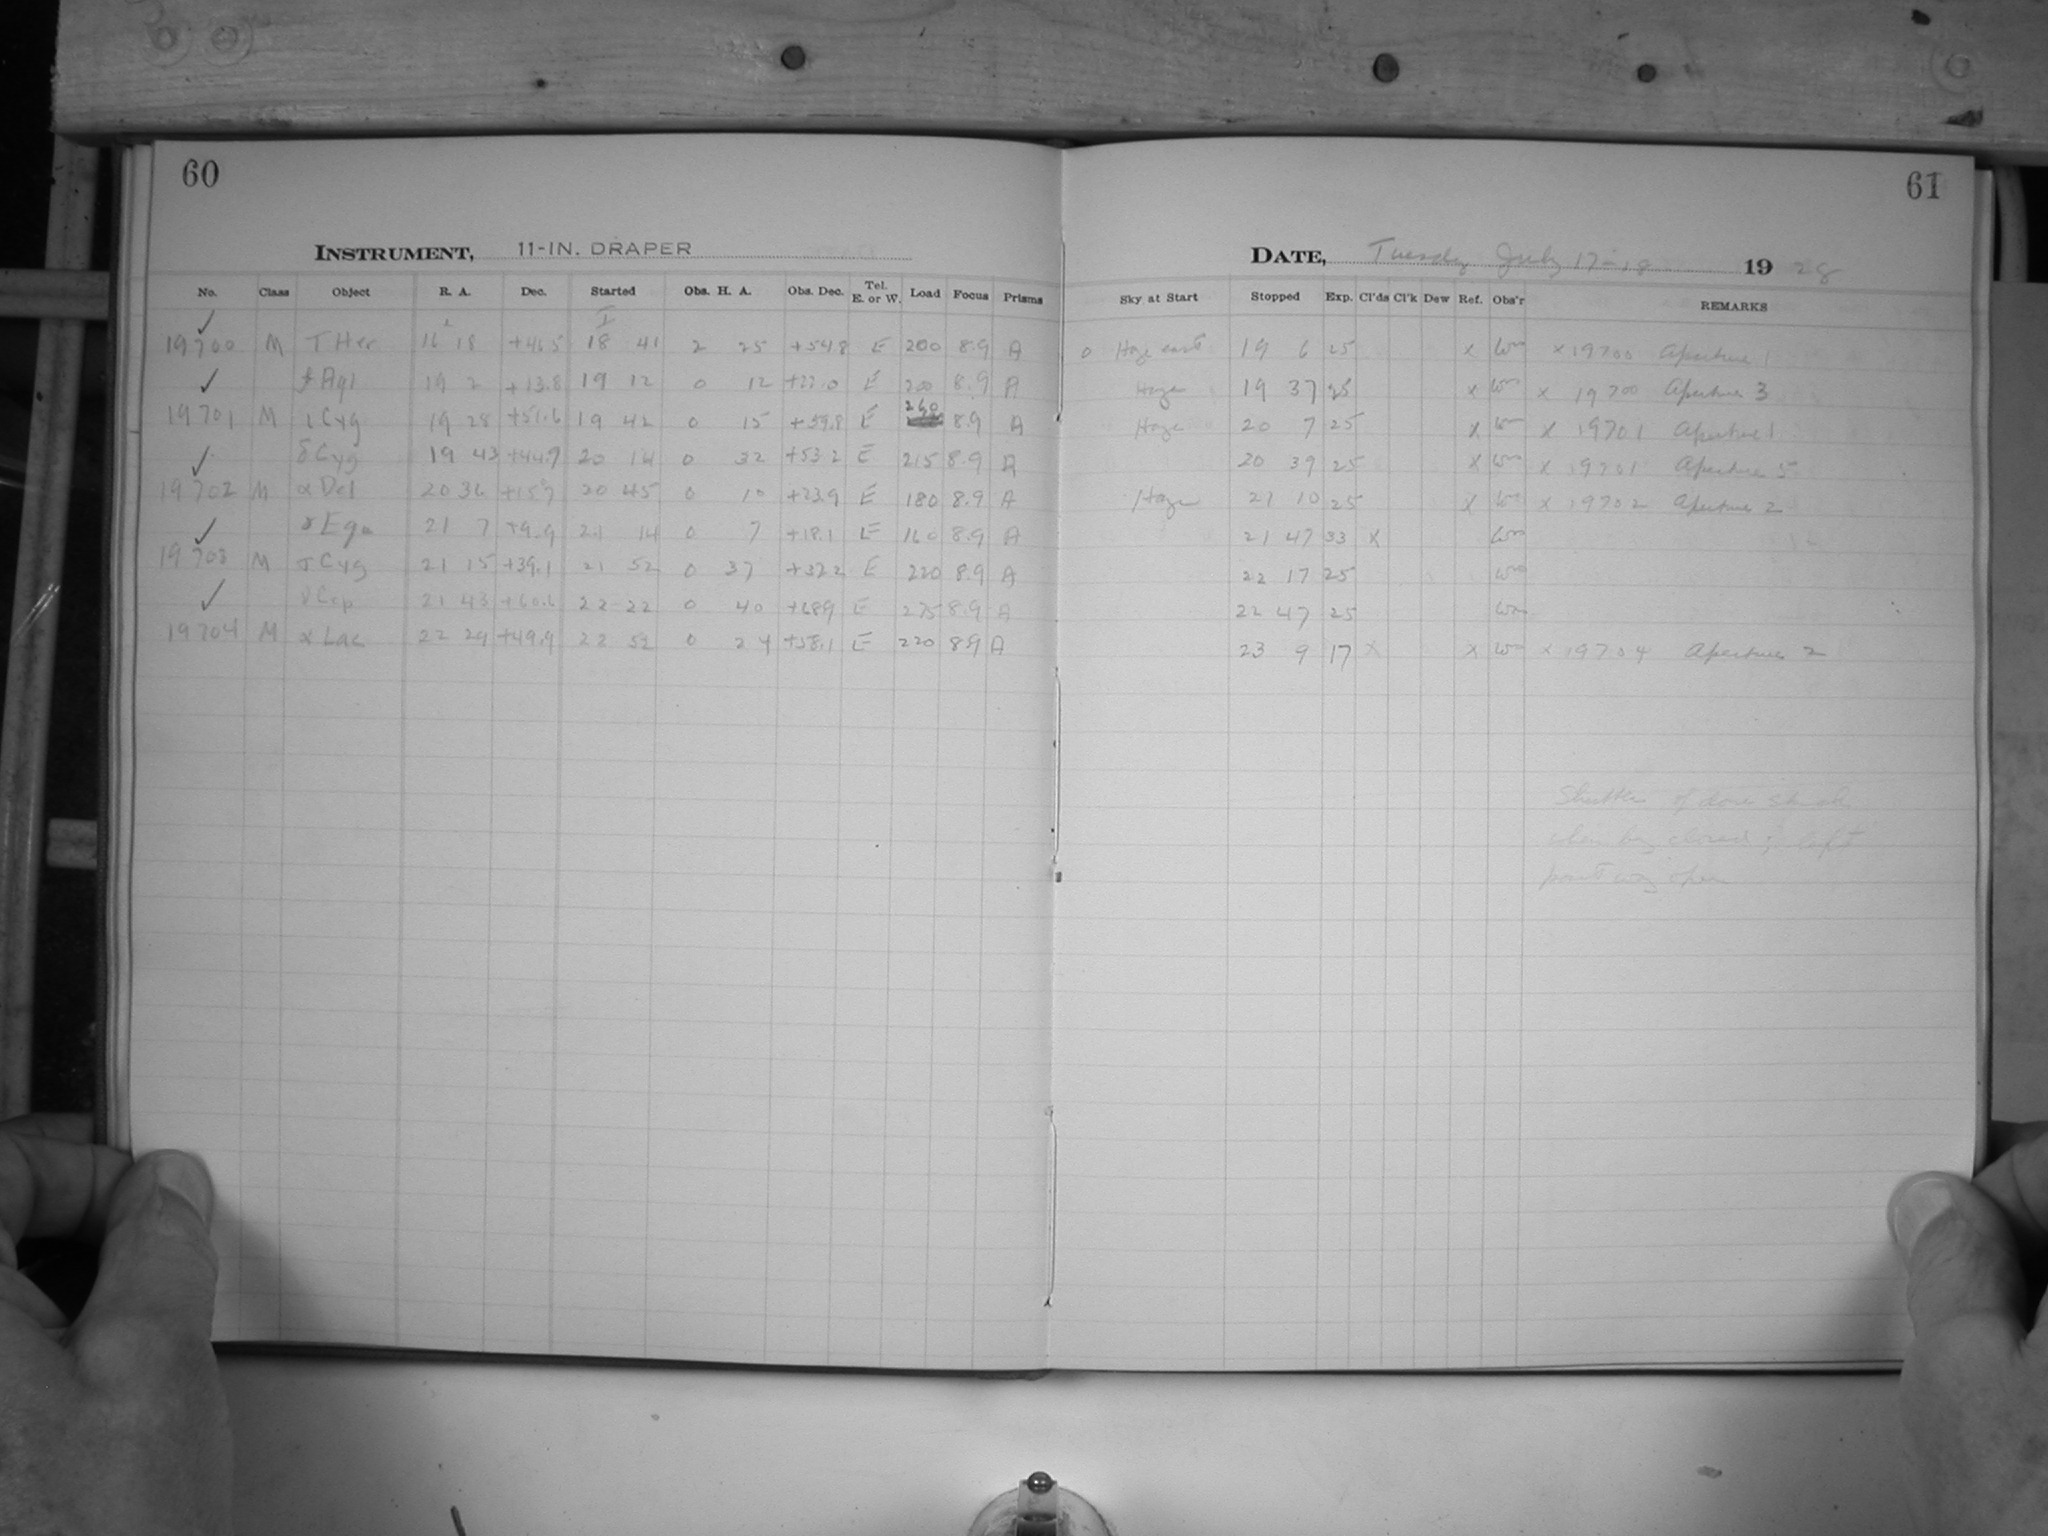 60
INSTRUMENT, 11-IN. DRAPER
No. Class Object R. A. Dec. Started Obs. H. A. Obs. Dec. Tel. E. or W. Load Focus Prisms
19700 M T Her 16 18 +46.5 18 41 2 25 +54.8 E 200 8.9 A
Aql 19 2 +13.8 19 12 0 12 +22.0 E 200 8.9 A
19701 M ι Cyg 19 28 +51.6 19 42 0 15 +59.8 E 260 8.9 A
δ Cyg 19 43 +44.9 20 14 0 32 +53.2 E 215 8.9 A
19702 M α Del 20 36 +15.7 20 45 0 10 +23.9 E 180 8.9 A
γ Equ 21 7 +9.9 21 14 0 7 +18.1 E 160 8.9 A
19703 M τ Cyg 21 15 +39.1 21 52 0 37 +37.2 E 220 8.9 A
Cep 21 43 +60.6 22 22 0 40 +68.9 E 275 8.9 A
19704 M α Lac 22 29 +49.9 22 52 0 24 +58.1 E 220 8.9 A
61
DATE, Tuesday July 17-18 1928
Sky at Start Stopped Exp. Cl'ds Cl'k Dew Ref. Obs'r REMARKS
0 Haze east 19 6 25 x x 19700 Aperture 1
Haze 19 37 25 x x 19700 Aperture 3
Haze 20 7 25 x x 19701 Aperture 1
20 39 25 x x 19701 Aperture 5
Haze 21 10 25 x x 19702 Aperture 2
21 47 33 x
22 17 25
22 47 25
23 9 17 x x x 19704 Aperture 2
Shutter of dome stuck
when closed; left
part way open